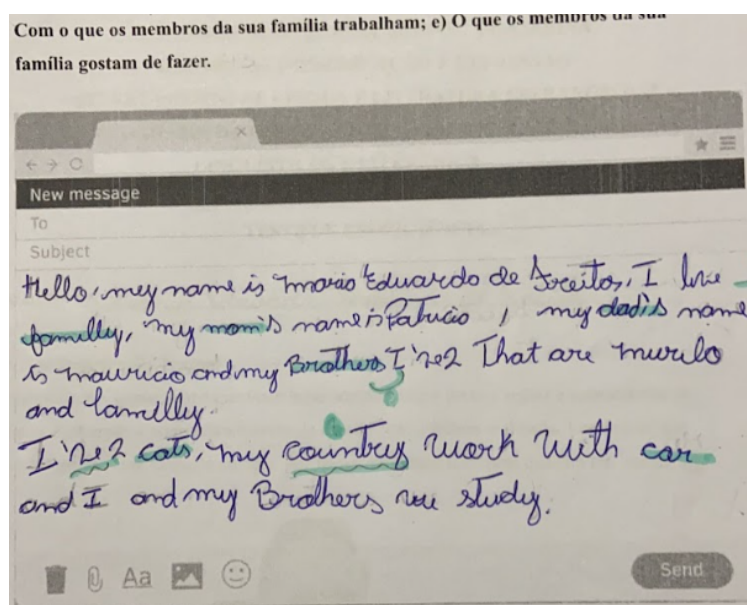 Com o que os membros da sua família trabalham; e) O que os membros da sua
família gostam de fazer.
New message
To
Subject
Hello, my name is Eduardo de I
familly, my mom's name is , my dad's name
is mauricio and my Brothers I've 2 That are murilo
and
I've 2 cats, my country work with car
and I and my Brothers we study.
Aa
Send